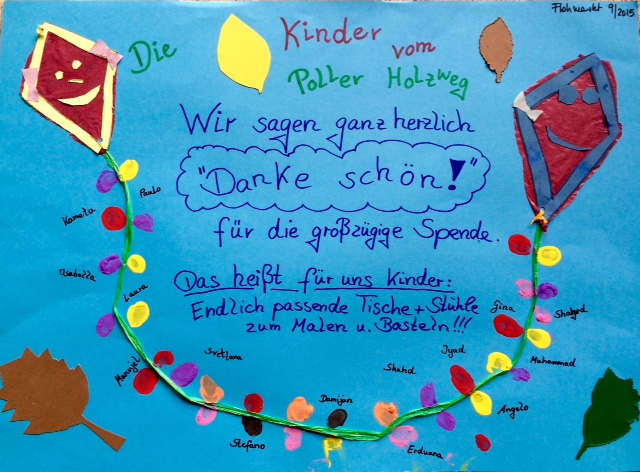 Flohmarkt 9/2015
Die Kinder vom
Poller Holzweg
Wir sagen ganz herzlich
"Danke schön!"
für die großzügige Spende.
Das heißt für uns Kinder:
Endlich passende Tische + Stühle
zum Malen u. Basteln!!!
Paulo
Kamela
Isabella
Laura
Manujel
Svetlana
Stefano
Damijan
Erduana
Shahd
Iyad
Angelo
Muhammad
Gina